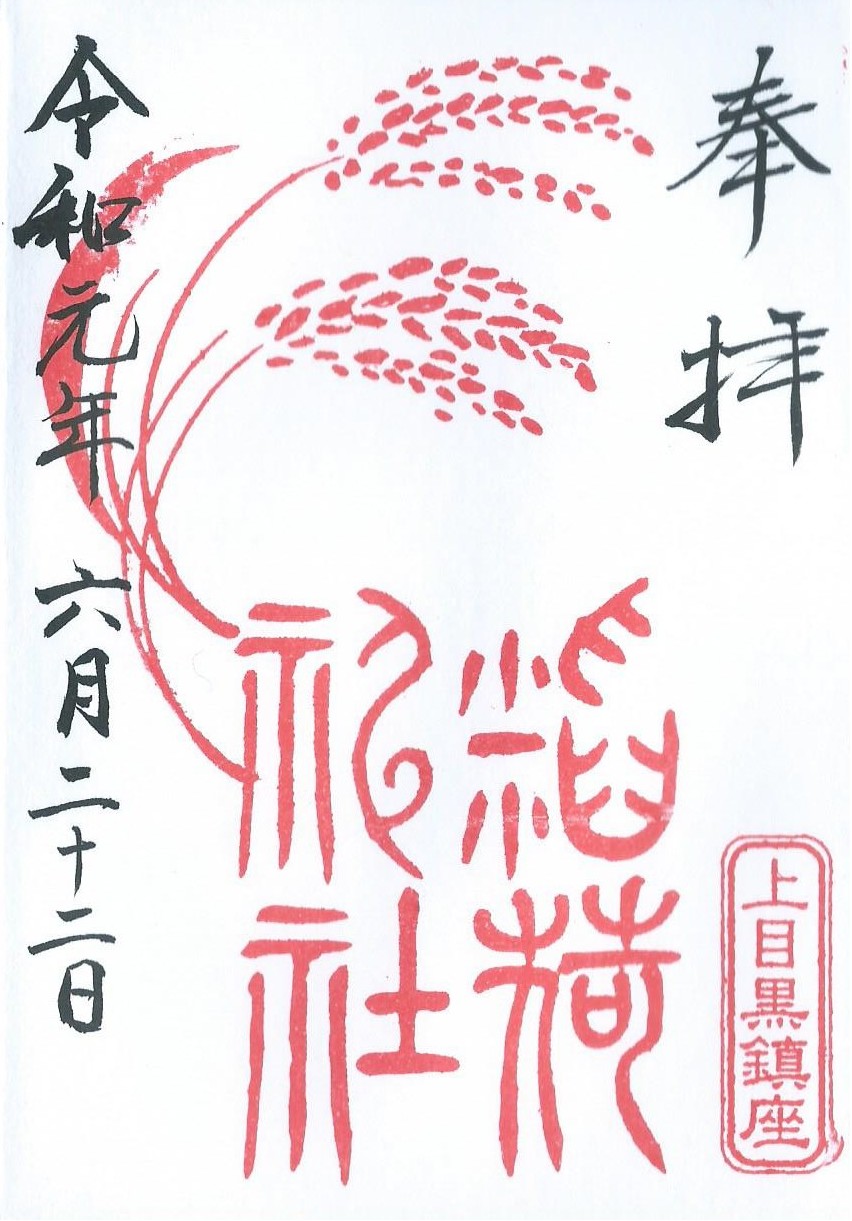 奉拝
上目黒鎮座
稲荷
神社
令和元年六月二十二日